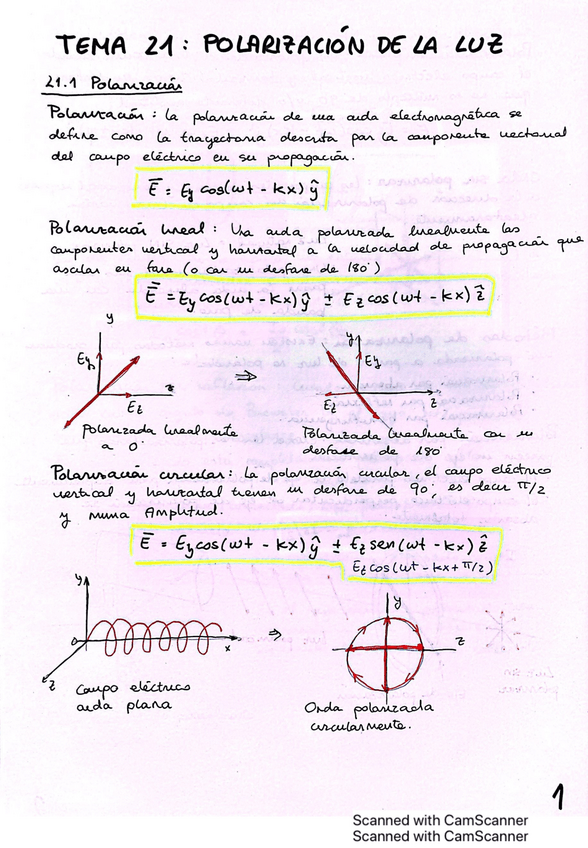 TEMA 21: POLARIZACIÓN DE LA LUZ
21.1 Polarización
Polarización: la polarización de una onda electromagnética se
define como la trayectoria descrita por la componente vectorial
del campo eléctrico en su propagación.
E̅ = Ey cos(ωt - kx) ŷ
Polarización lineal: Una onda polarizada linealmente las
componentes vertical y horizontal a la velocidad de propagación que
oscilan en fase (o con un desfase de 180°)
E̅ = Ey cos(ωt - kx) ŷ ± Ez cos(ωt - kx) ẑ
y
Ey
z
Ez
⇒
y
Ey
Ez
z
Polarizada linealmente
a 0°
Polarizada linealmente con un
desfase de 180°
Polarización circular: la polarización circular, el campo eléctrico
vertical y horizontal tienen un desfase de 90°, es decir π/2
y misma Amplitud.
E̅ = Ey cos(ωt - kx) ŷ ± Ez sen(ωt - kx) ẑ
Ez cos(ωt - kx + π/2)
y
0
x
z
⇒
y
z
Campo eléctrico
onda plana
Onda polarizada
circularmente.
1
Scanned with CamScanner
Scanned with CamScanner